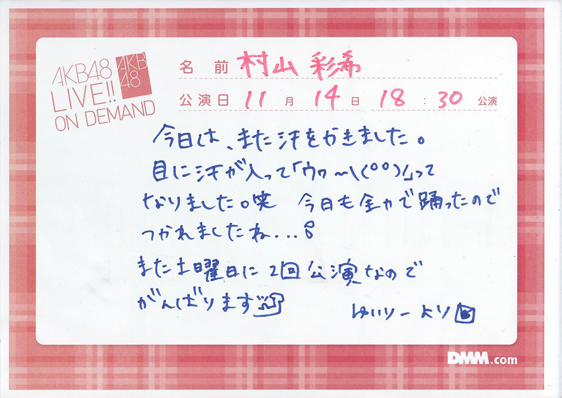 AKB48
LIVE!!
ON DEMAND
AKB
48
名前 村山 彩希
公演日 11月 14日 18:30公演
今日は、また汗をかきました。
目に汗が入って「ウワ〜\(°°)」って
なりました。笑 今日も全力で踊ったので
つかれましたね...
また土曜日に2回公演なので
がんばります
ゆいりーより
DMM.com